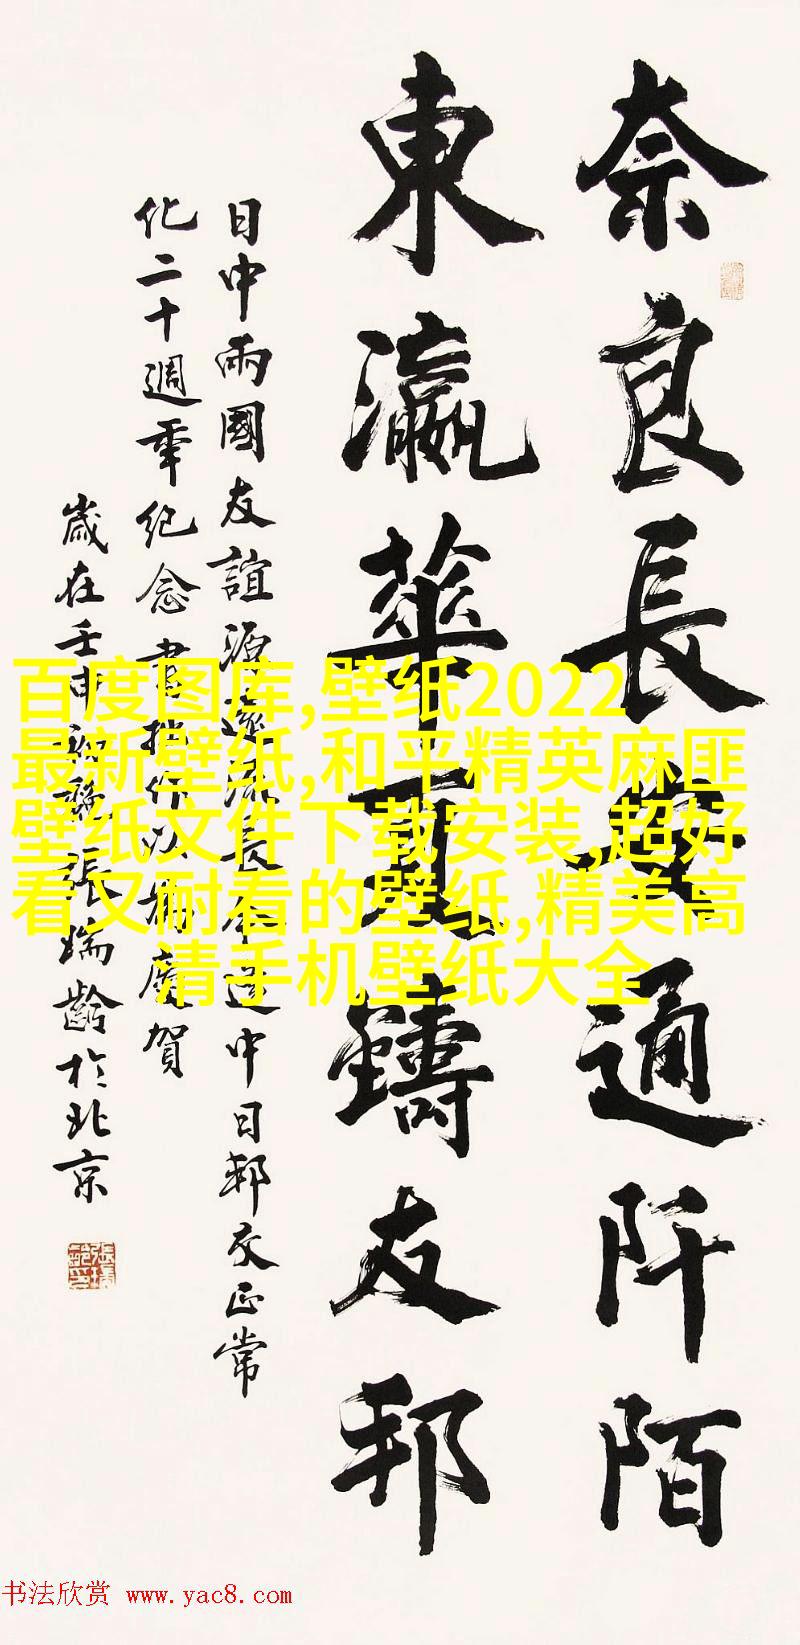 奈良長安通阡陌
東瀛華夏鑄友邦
日中兩國友誼源遠流長今逢中日邦交正常
化二十週年紀念書拙作以為慶賀
歲在壬申初龝張瑞齡於北京
百度图库,壁纸2022
最新壁纸,和平精英麻匪
壁纸文件下载安装,超好
看又耐看的壁纸,精美高
清手机壁纸大全
书法欣赏 www.yac8.com